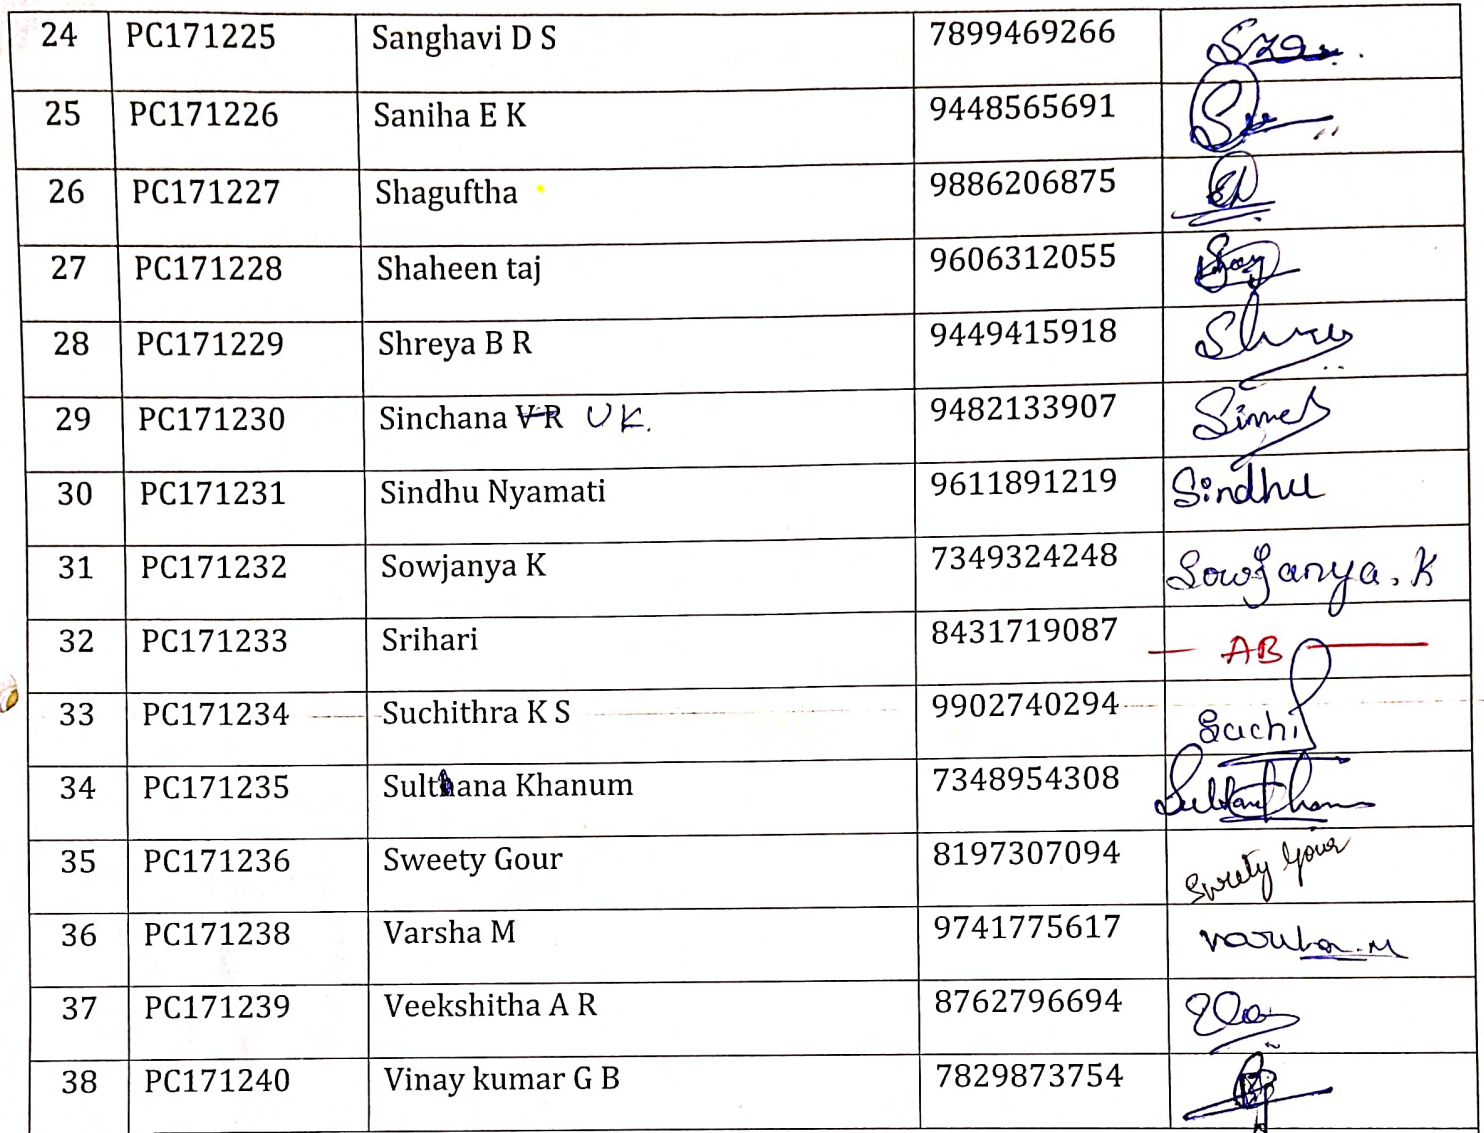 24 PC171225 Sanghavi D S 7899469266
25 PC171226 Saniha E K 9448565691
26 PC171227 Shaguftha 9886206875
27 PC171228 Shaheen taj 9606312055
28 PC171229 Shreya B R 9449415918
29 PC171230 Sinchana V R U K. 9482133907
30 PC171231 Sindhu Nyamati 9611891219 Sindhu
31 PC171232 Sowjanya K 7349324248 Sowjanya. K
32 PC171233 Srihari 8431719087 — AB —
33 PC171234 Suchithra K S 9902740294 Suchi
34 PC171235 Sulthana Khanum 7348954308
35 PC171236 Sweety Gour 8197307094 Sweety Gour
36 PC171238 Varsha M 9741775617 Varsha.M
37 PC171239 Veekshitha A R 8762796694
38 PC171240 Vinay kumar G B 7829873754